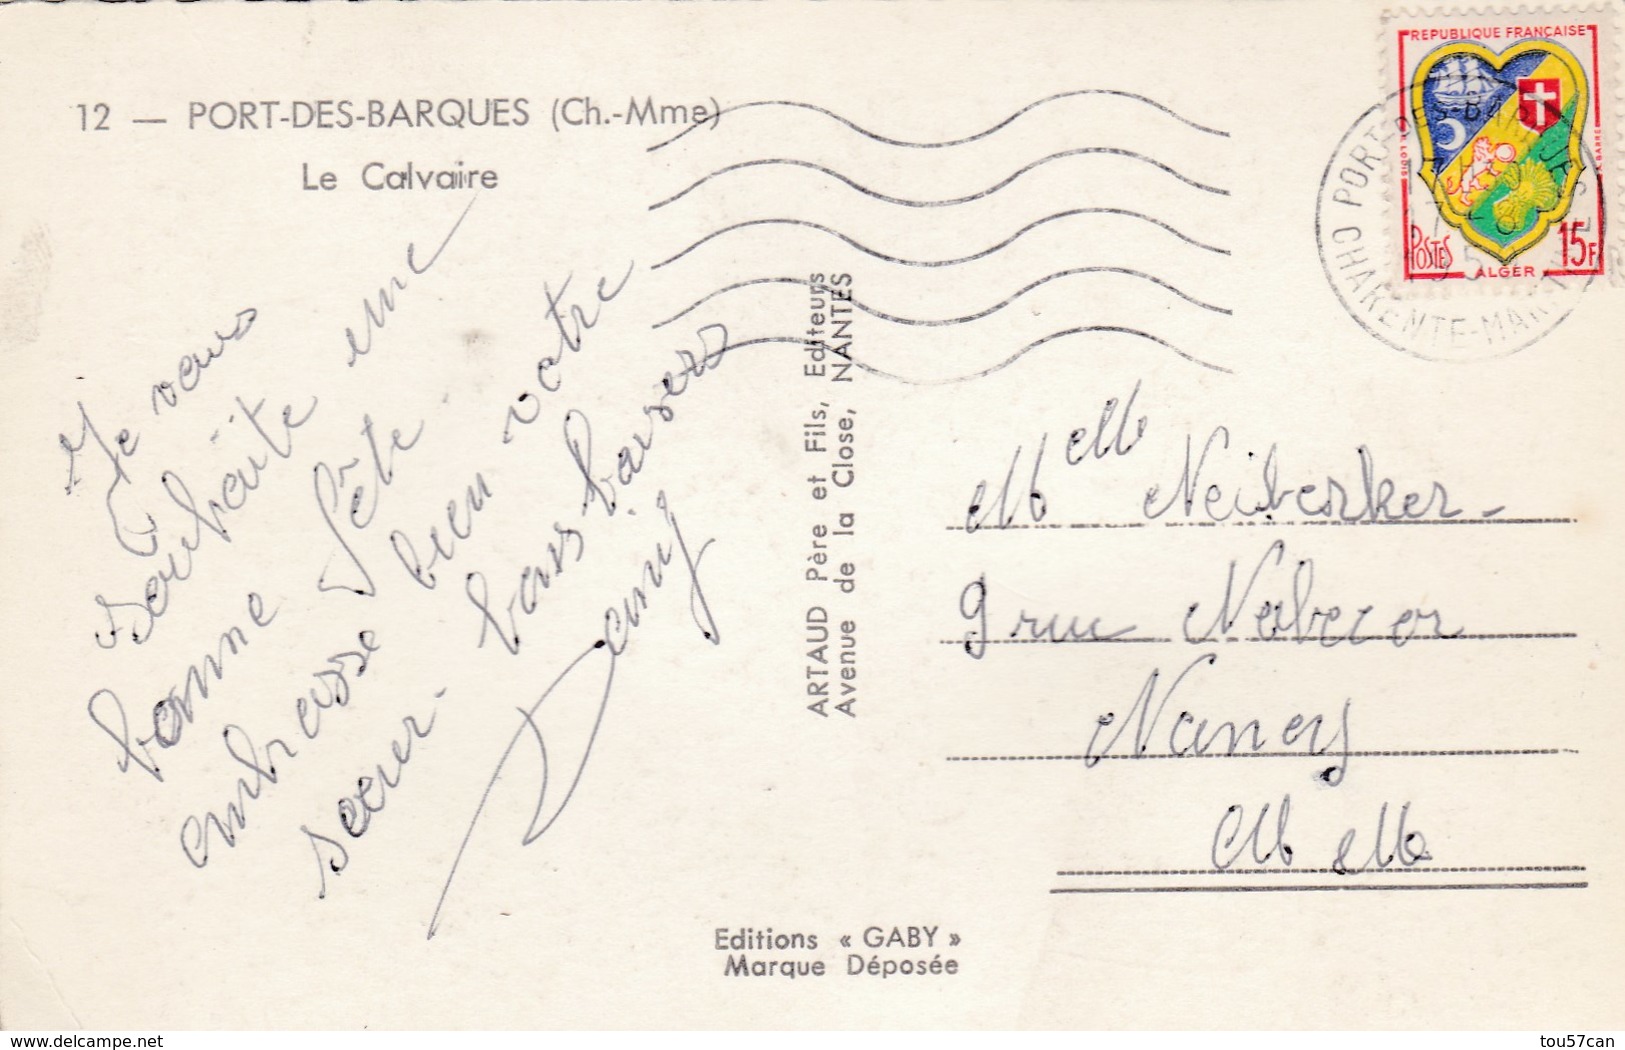 12 — PORT-DES-BARQUES (Ch.-Mme)
Le Calvaire
Je vous
souhaite une
bonne fête
embrasse bien votre
sœur. bons baisers
ARTAUD Père et Fils, Editeurs
Avenue de la Close, NANTES
REPUBLIQUE FRANÇAISE
POSTES
15F
ALGER
PORT-DES-BARQUES
CHARENTE-MARITIME
Melle Neiberker
9 rue Nabecor
Nancy
M & M
Editions « GABY »
Marque Déposée
tou57can